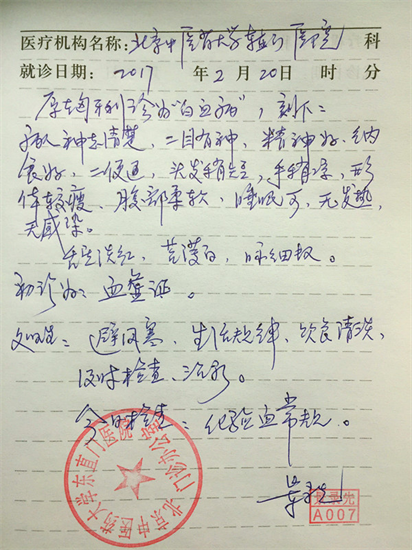 医疗机构名称:北京中医药大学东直门医院 科
就诊日期: 2017 年 2 月 20 日 时 分
诊为"白血病",刻下:
病人神志清楚,二目有神,精神好,纳
食好,二便通,头发稍白,手稍凉,形
体较瘦,腹部柔软,睡眠可,无发热,
无感染。
舌淡红,苔薄白,脉细数。
初诊为:血虚证。
避风寒,生活规律,饮食清淡,
及时检查、治疗。
今日检查:化验血常规。
北京中医药大学东直门医院
门诊办公室
A007